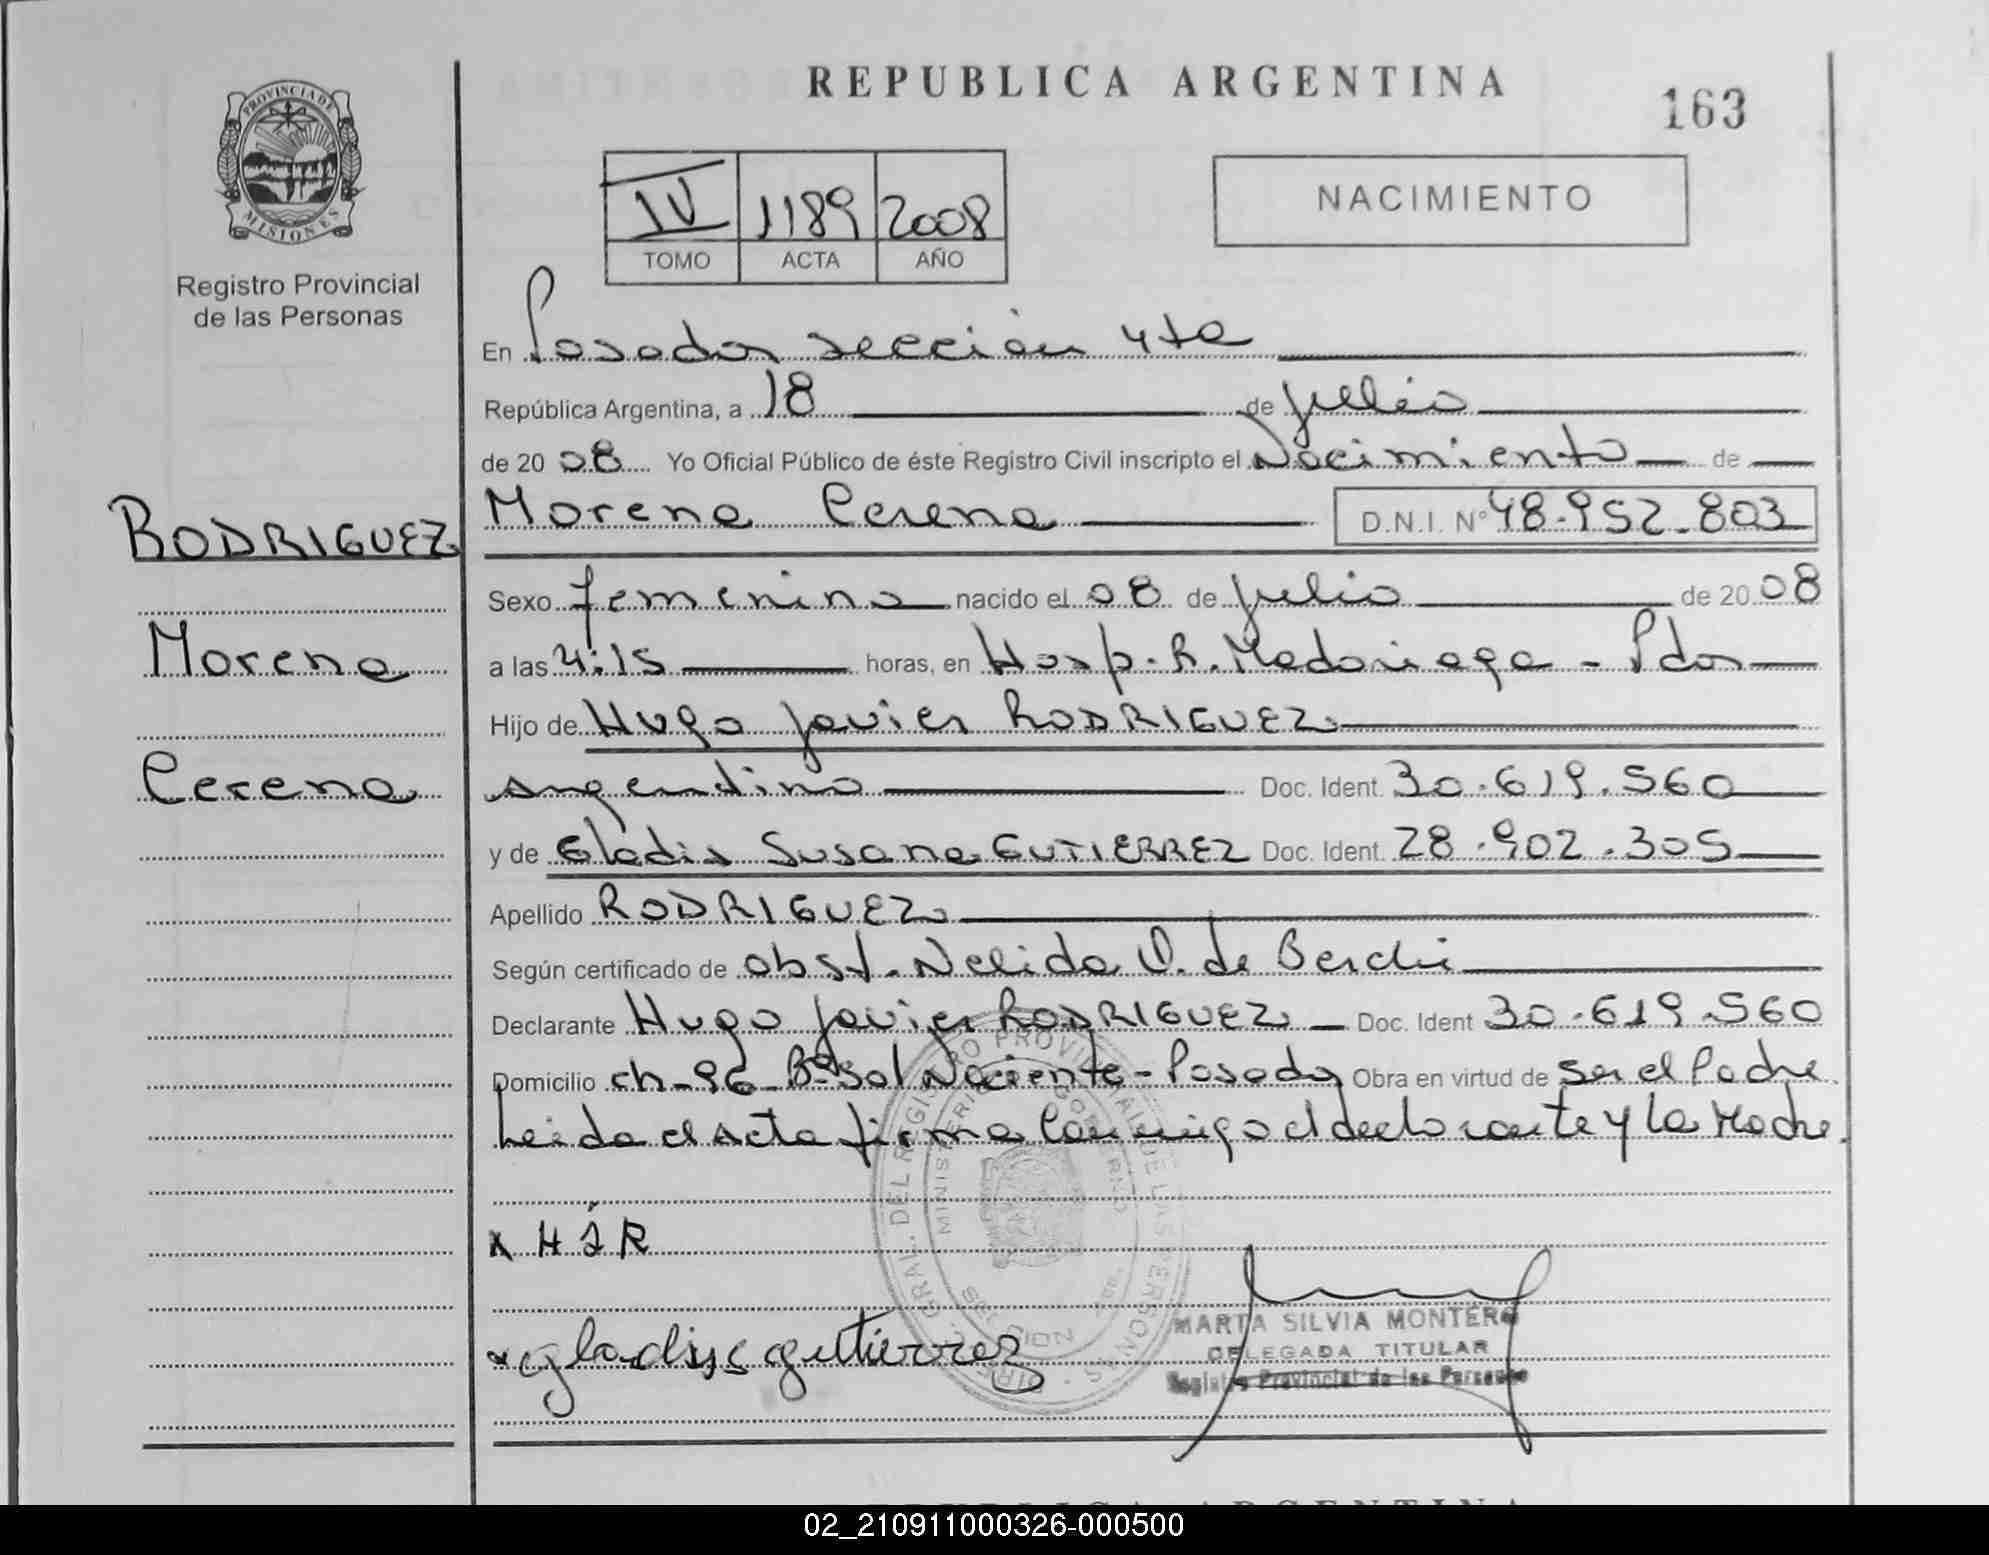 REPUBLICA ARGENTINA
163
PROVINCIA DE MISIONES
Registro Provincial
de las Personas
IV 1189 2008
TOMO ACTA AÑO
NACIMIENTO
En Posadas sección 4ta
República Argentina, a 18 de julio
de 20 08 Yo Oficial Público de éste Registro Civil inscripto el Nacimiento de
RODRIGUEZ
Morena
Cerena
Morena Cerena D.N.I. Nº 48.952.803
Sexo femenino nacido el 08 de julio de 20 08
a las 4:15 horas, en Hosp. R. Madariaga - Pdas
Hijo de Hugo Javier RODRIGUEZ
argentino Doc. Ident. 30.619.560
y de Gladis Susana GUTIERREZ Doc. Ident. 28.902.305
Apellido RODRIGUEZ
Según certificado de obst. Nelida O. de Berchi
Declarante Hugo Javier RODRIGUEZ Doc. Ident 30.619.560
Domicilio ch-96 Bº Sol Naciente - Posadas Obra en virtud de ser el Padre
Leida el acta firma conmigo el declarante y la Madre.
x HJR
x gladys gutierrez
MARTA SILVIA MONTERO
DELEGADA TITULAR
Registro Provincial de las Personas
02_210911000326-000500